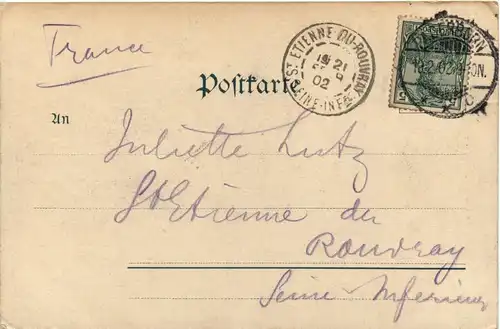 France
Postkarte
An
ST ETIENNE DU-ROUVRAY
21
9
02
SEINE-INFRE
5
Juliette Lutz
St Etienne du
Rouvray
Seine Inferieure